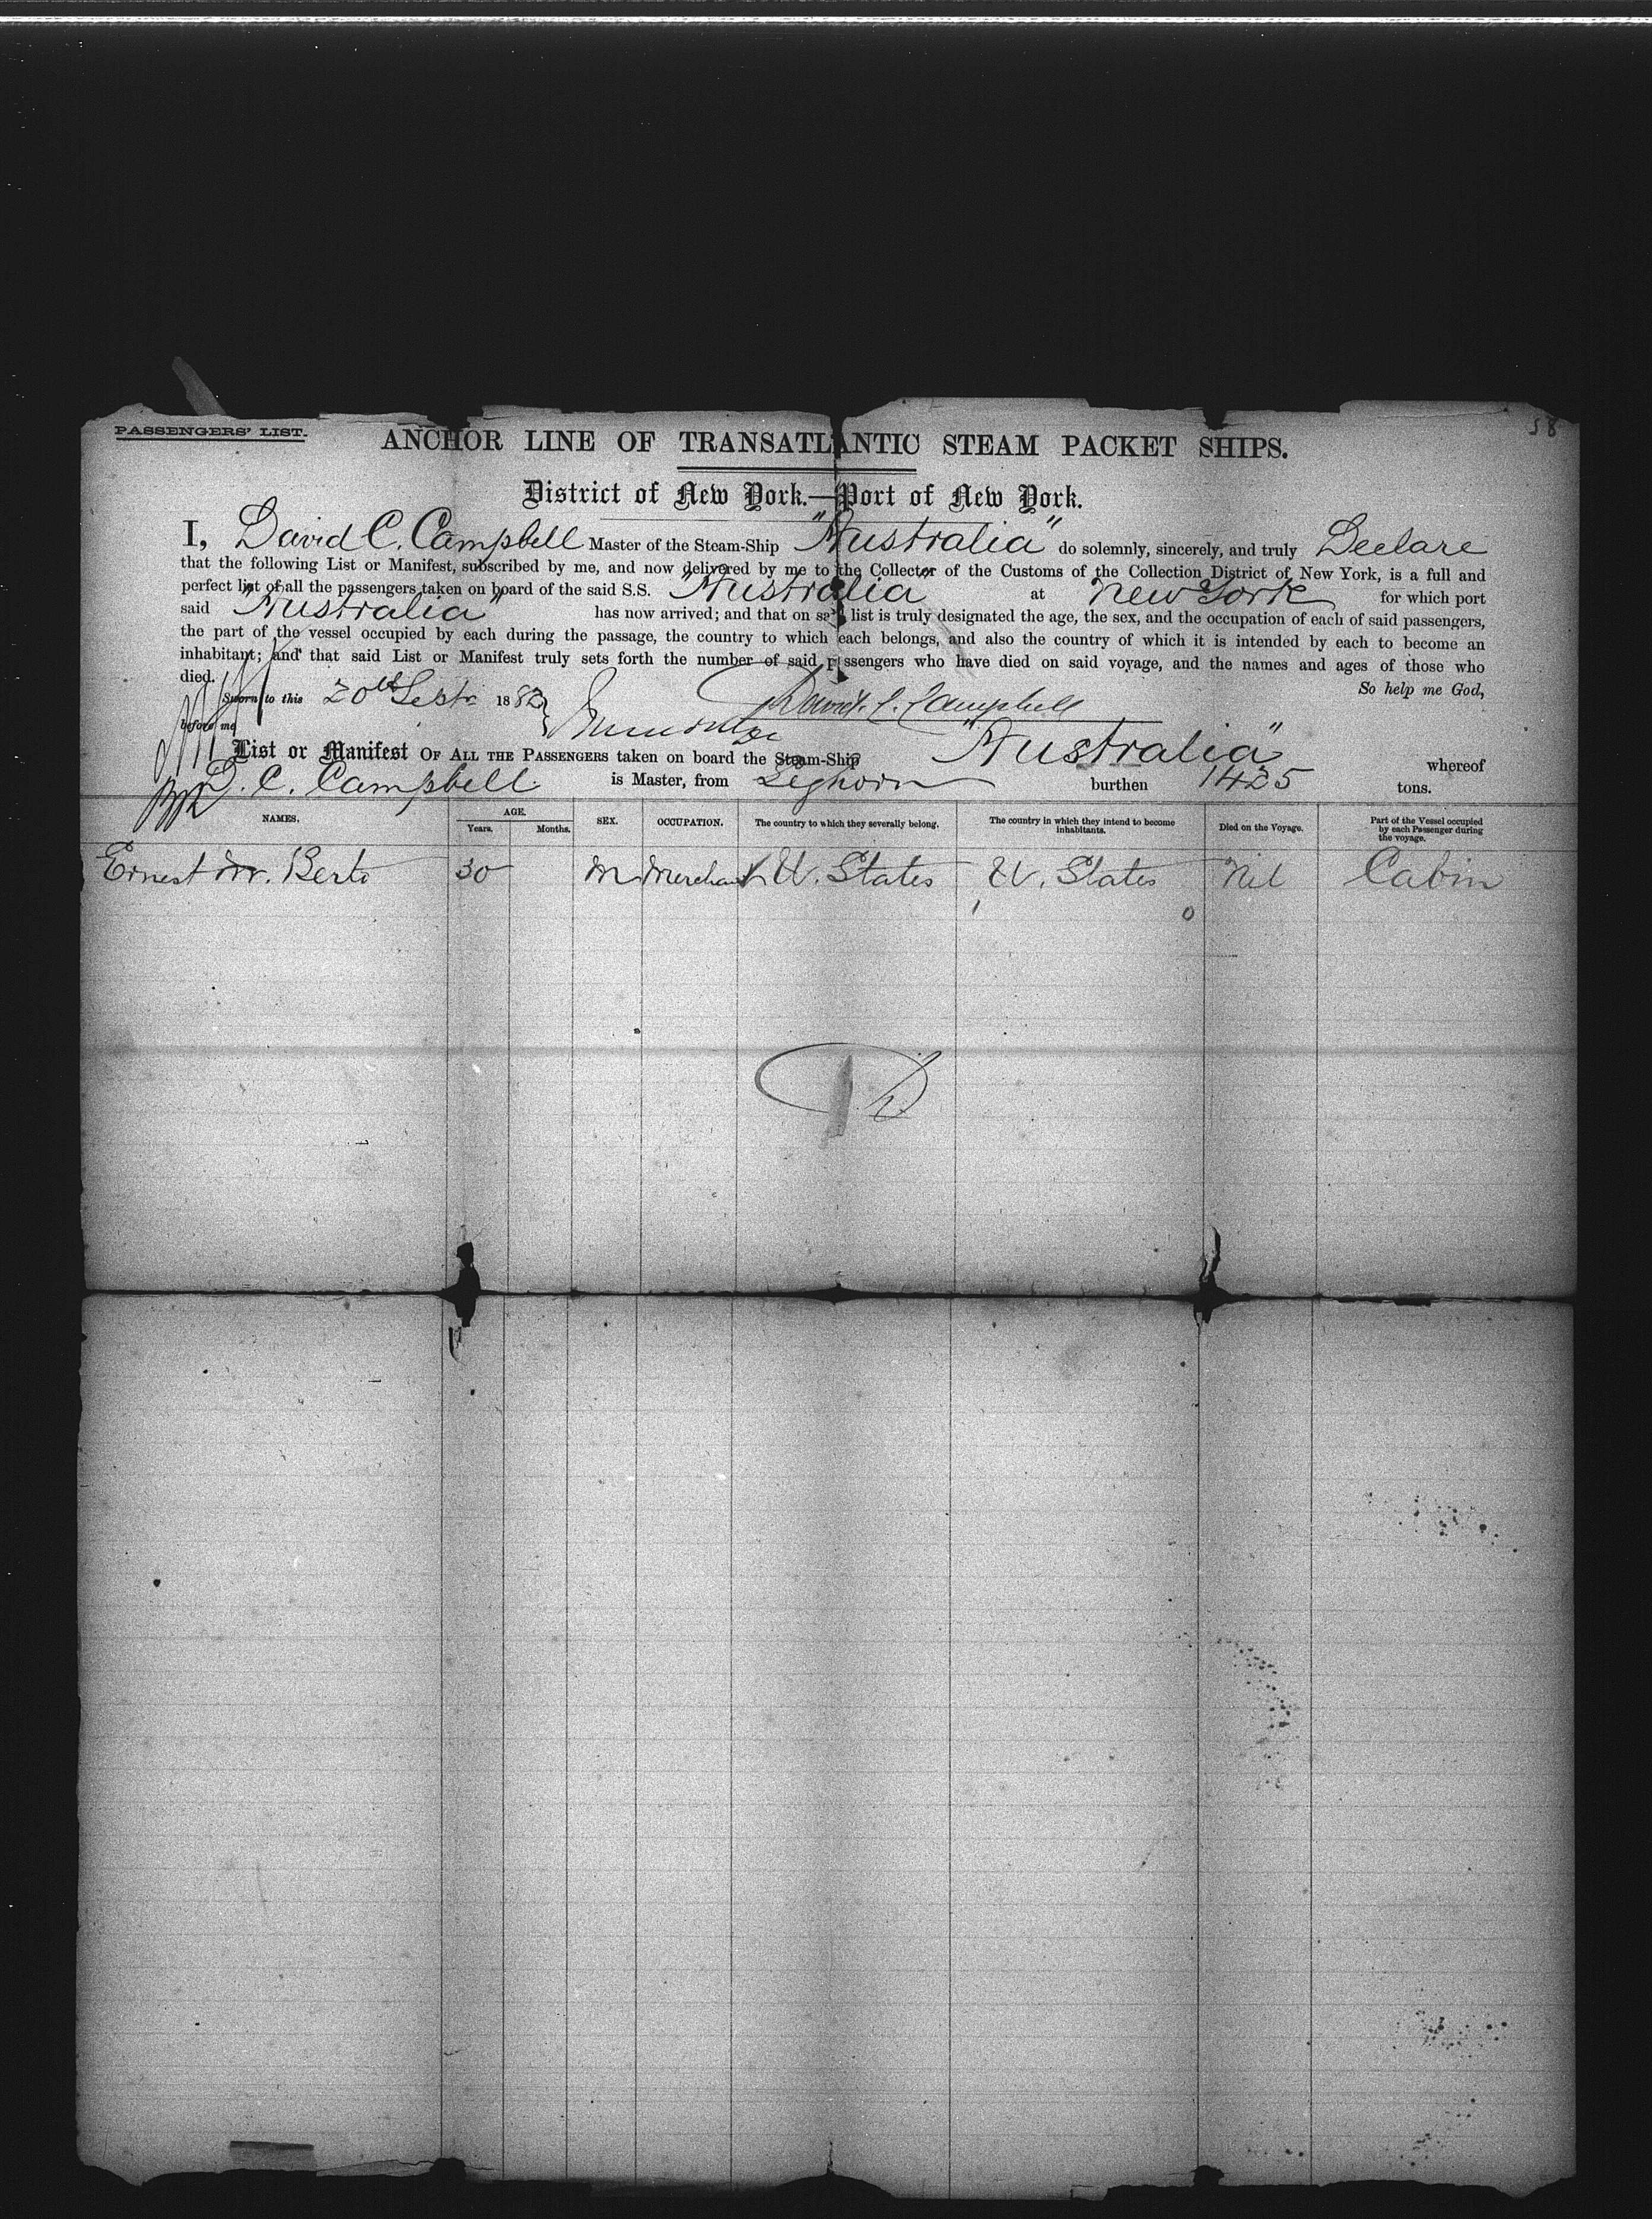 58
PASSENGERS' LIST.
ANCHOR LINE OF TRANSATLANTIC STEAM PACKET SHIPS.
District of New York.—Port of New York.
I, David C. Campbell Master of the Steam-Ship "Australia" do solemnly, sincerely, and truly Declare
that the following List or Manifest, subscribed by me, and now delivered by me to the Collector of the Customs of the Collection District of New York, is a full and
perfect list of all the passengers taken on board of the said S.S. "Australia" at New York for which port
said "Australia" has now arrived; and that on said list is truly designated the age, the sex, and the occupation of each of said passengers,
the part of the vessel occupied by each during the passage, the country to which each belongs, and also the country of which it is intended by each to become an
inhabitant; and that said List or Manifest truly sets forth the number of said passengers who have died on said voyage, and the names and ages of those who
died.
So help me God,
Sworn to this 20th Septr 1882
David C. Campbell
before me
List or Manifest OF ALL THE PASSENGERS taken on board the Steam-Ship "Australia" whereof
D. C. Campbell is Master, from Leghorn burthen 1425 tons.
NAMES. AGE. Years. Months. SEX. OCCUPATION. The country to which they severally belong. The country in which they intend to become inhabitants. Died on the Voyage. Part of the Vessel occupied by each Passenger during the voyage.
Ernest M. Berto 30 M Merchant U. States U. States Nil Cabin